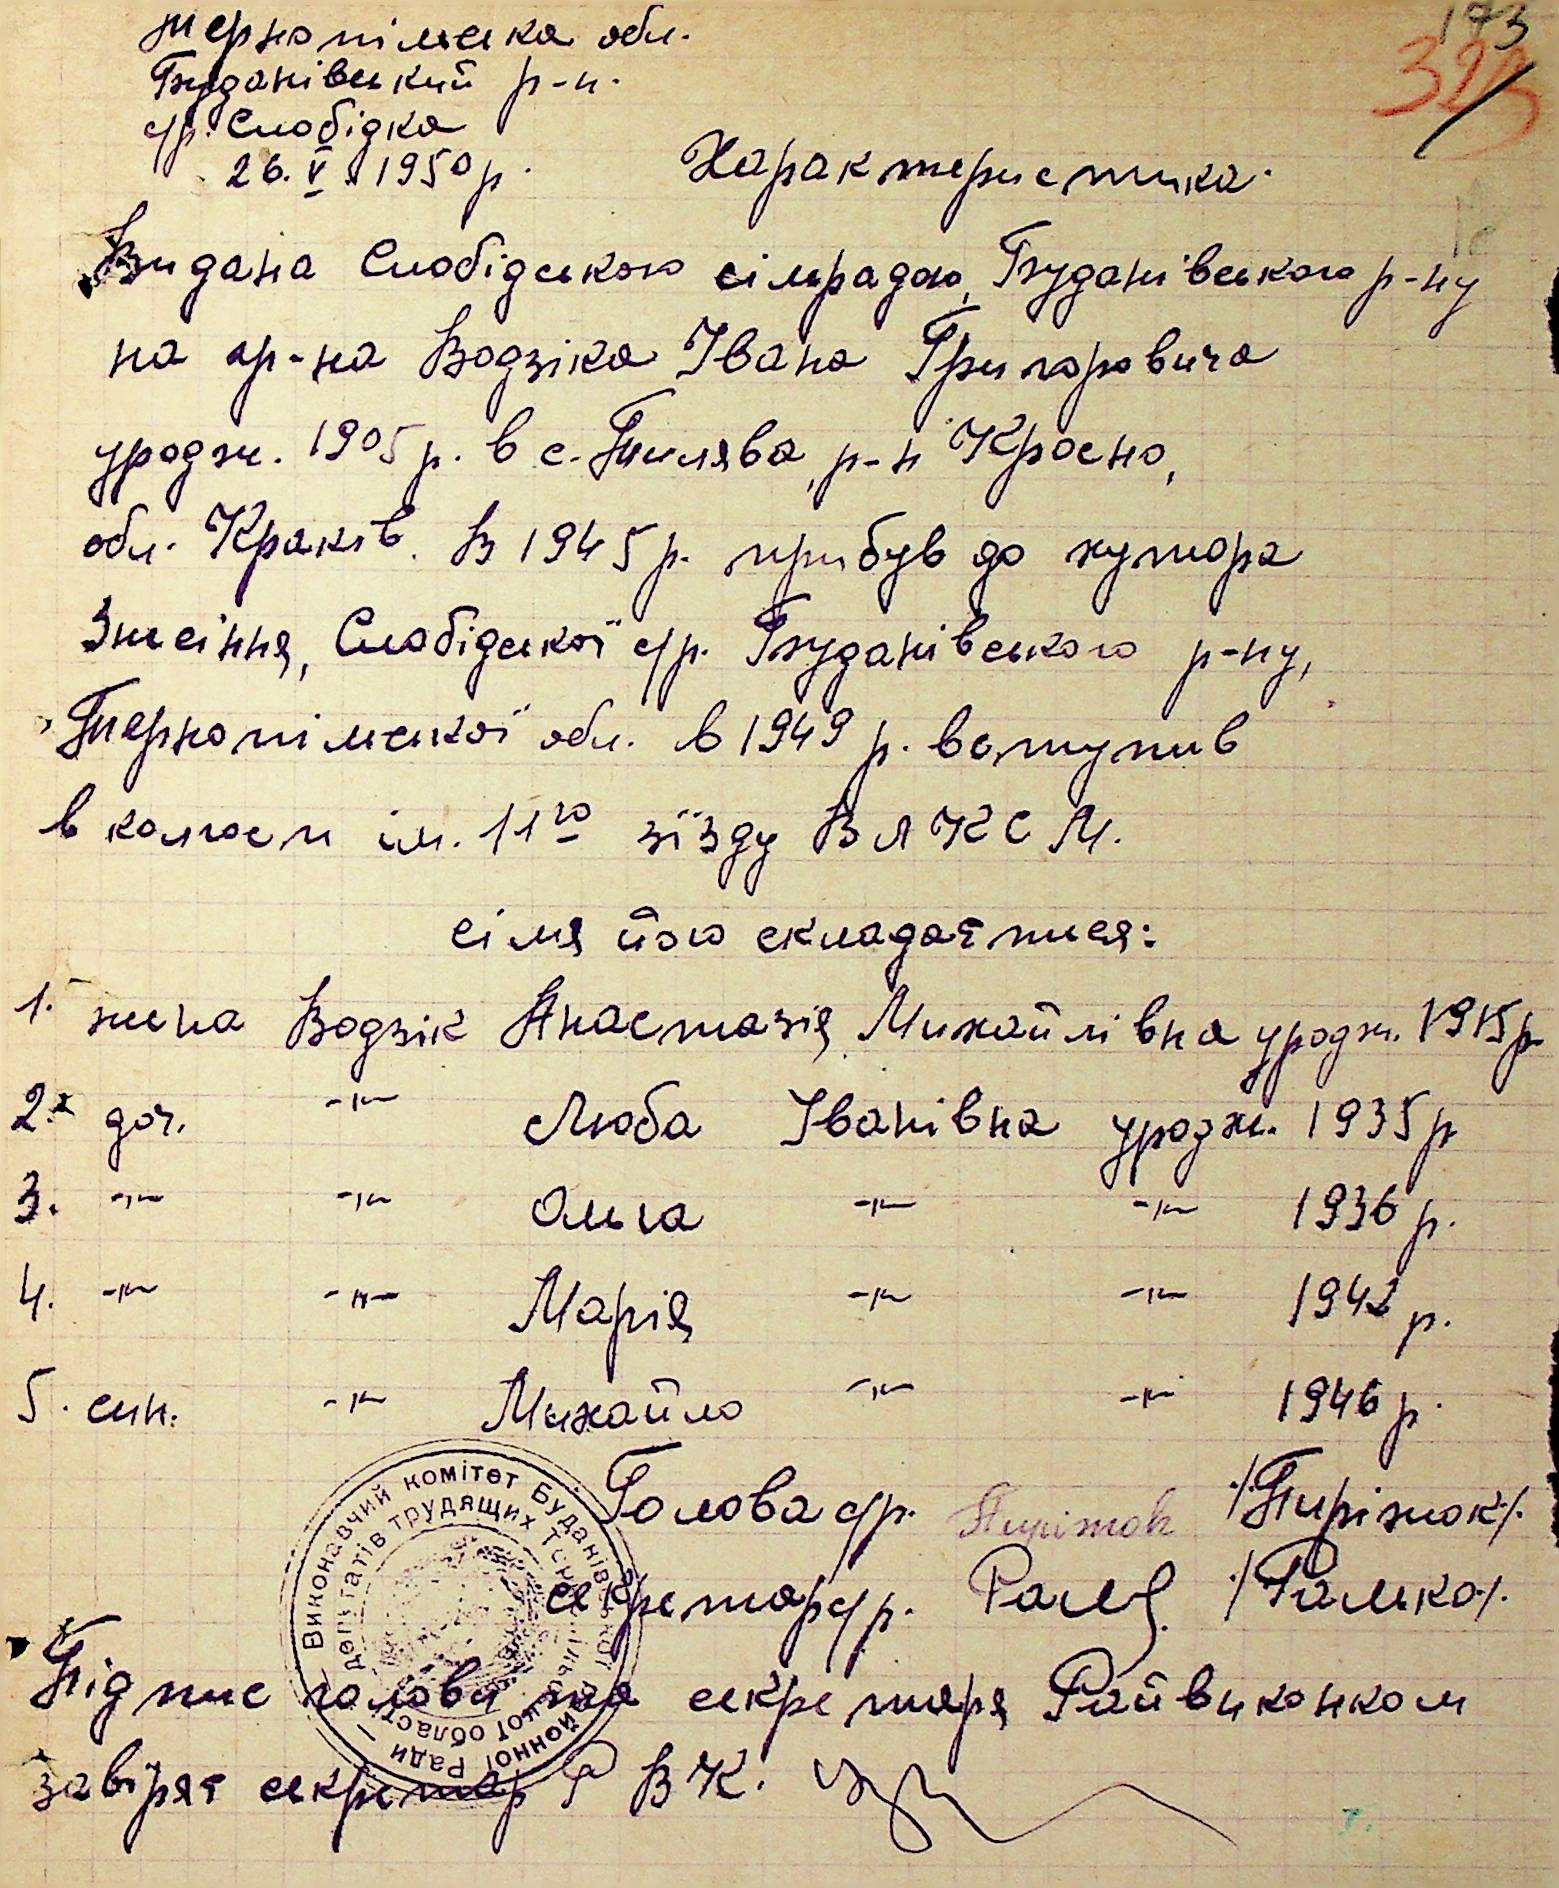 173
323
Тернопільська обл.
Буданівський р-н.
с/р. Слобідка
26. V. 1950 р.
Характеристика.
Видана Слобідською сільрадою, Буданівського р-ну
на гр-на Водзіка Івана Григоровича
уродж. 1905 р. в с. Тилява, р-н Кросно,
обл. Краків. В 1945 р. прибув до хутора
Знесіння, Слобідської с/р. Буданівського р-ну,
Тернопільської обл. в 1949 р. вступив
в колгосп ім. 11го зїзду ВЛКСМ.
сімя його складаєтися:
1. жена Водзік Анастазія Михайлівна уродж. 1915 р.
2. доч. -"- Люба Іванівна уродж. 1935 р
3. -"- -"- Ольга -"- -"- 1936 р.
4. -"- -"- Марія -"- -"- 1942 р.
5. син. -"- Михайло -"- -"- 1946 р.
Голова с/р. Пиріжок /Пиріжок/.
секретар с/р. /Ралько/.
Підпис голови та секретаря Райвиконком
завіряє секретар РВК.
Виконавчий комітет Буданівської районної Ради
депутатів трудящих Тернопільської області